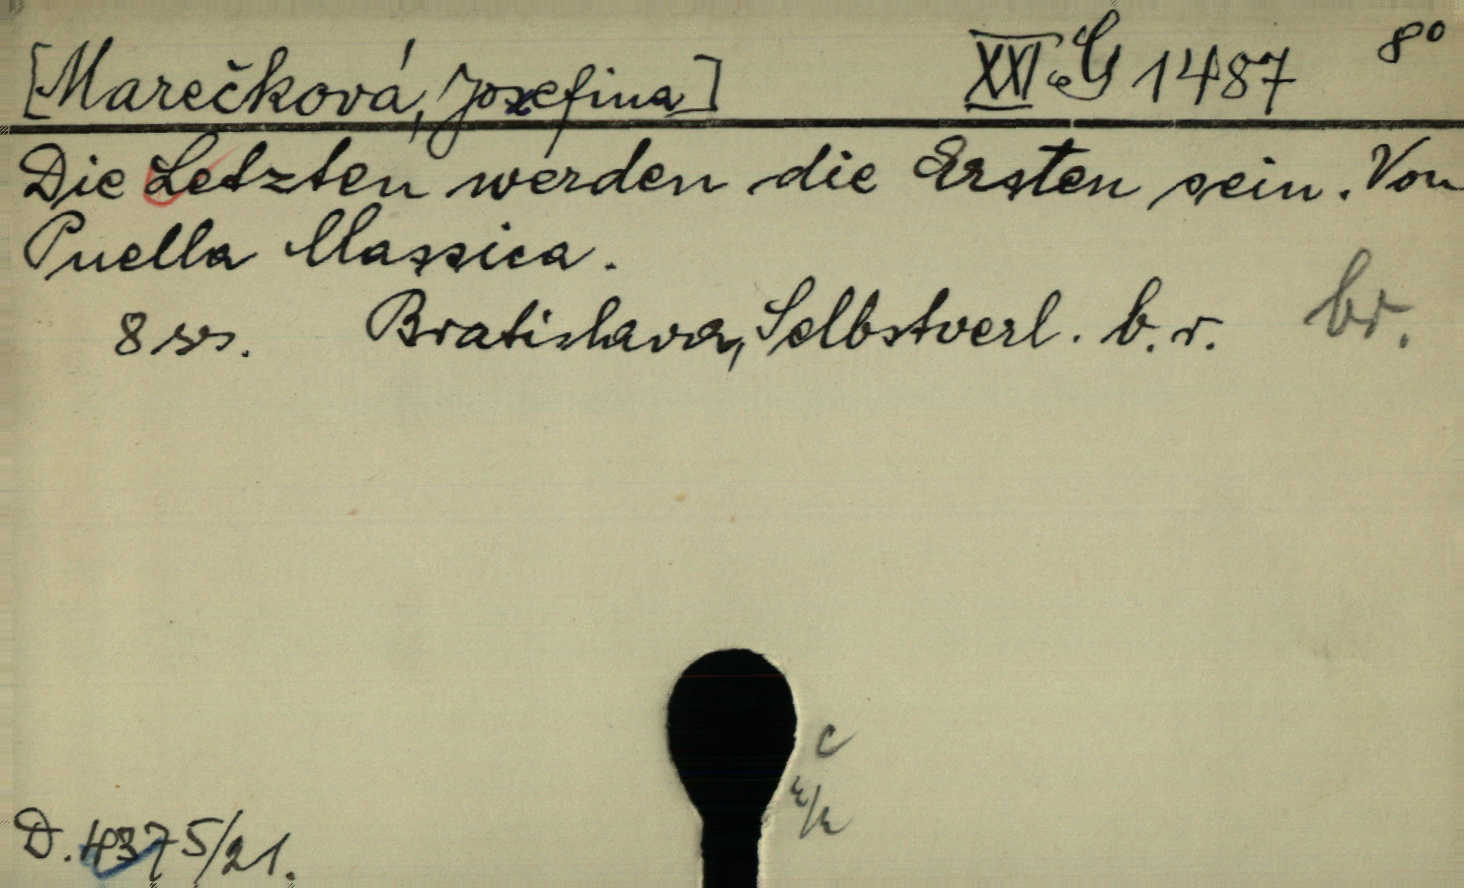 [Marečková, Josefina] XXI G 1487 8°
Die Letzten werden die Ersten sein. Von
Puella Classica.
8 ss. Bratislava, Selbstverl. b.r. br.
D. 4375/21.
c